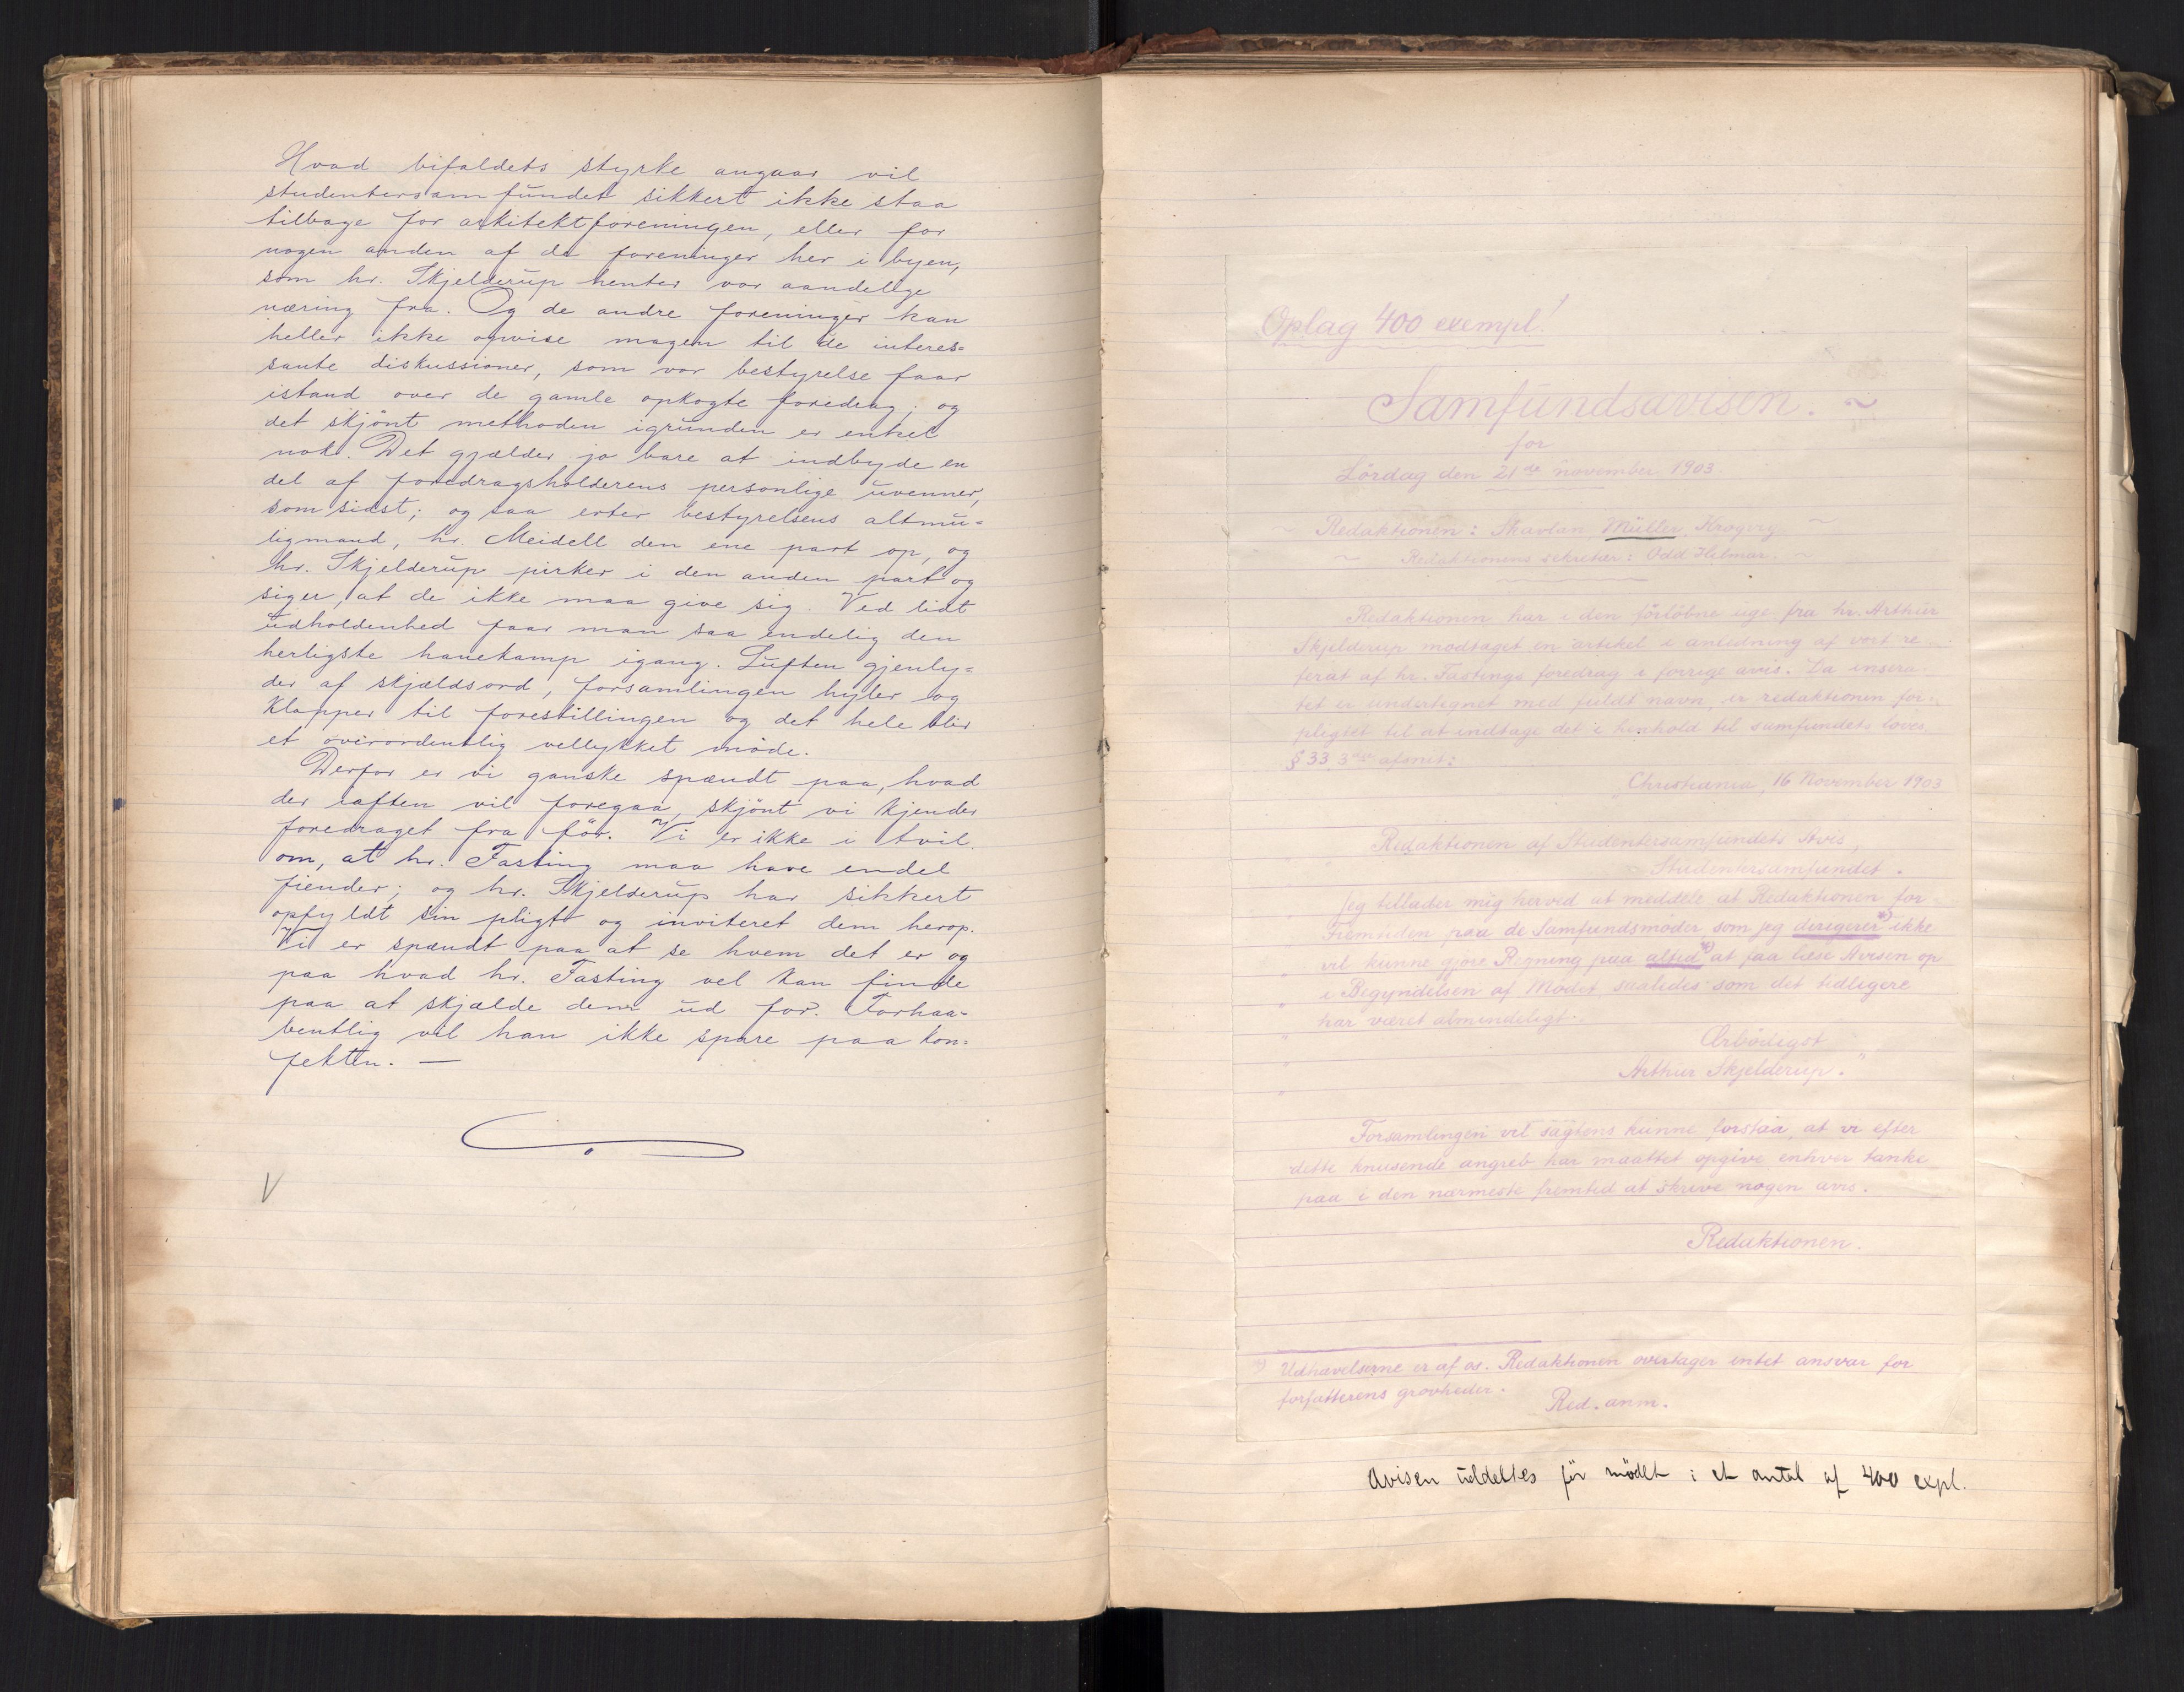 Hvad bifaldets styrke angaar vil
studentersamfundet sikkert ikke staa
tilbage for arkitektforeningen, eller for
nogen anden af de foreninger her i byen,
som hr. Skjelderup henter vor aandelige
næring fra. Og de andre foreninger kan
heller ikke opvise magen til de interes=
sante diskussioner, som vor bestyrelse faar
istand over de gamle opkogte foredrag; og
det skjönt methoden igrunden er enkel
nok. Det gjælder jo bare at indbyde en
del af foredragsholderens personlige uvenner,
som sidst; og saa erter bestyrelsens altmu=
ligmand, hr. Meidell den ene part op, og
hr. Skjelderup pirker i den anden part og
siger, at de ikke maa give sig. Ved lidt
udholdenhed faar man saa endelig den
herligste hanekamp igang. Luften gjenly=
der af skjældsord, forsamlingen hyler og
klapper til forestillingen og det hele blir
et overordentlig vellykket möde.
Derfor er vi ganske spændt paa, hvad
der iaften vil foregaa, skjönt vi kjender
foredraget fra för. Vi er ikke i tvil
om, at hr. Fasting maa have endel
fiender; og hr. Skjelderup har sikkert
opfyldt sin pligt og inviteret dem herop.
Vi er spændt paa at se hvem det er og
paa hvad hr. Fasting vel kan finde
paa at skjælde dem ud for. Forhaa=
bentlig vil han ikke spare paa kon=
fekten. —
V
Oplag 400 exempl!
Samfundsavisen. ~
for
Lördag den 21de november 1903.
~ Redaktionen: Skavlan, Müller, Krogery. ~
~ Redaktionens sekretær: Odd Hilmar. ~
Redaktionen har i den förlöbne uge fra hr. Arthur
Skjelderup modtaget en artikel i anledning af vort re-
ferat af hr. Fastings foredrag i forrige avis. Da insera-
tet er undertegnet med fuldt navn, er redaktionen for-
pligtet til at indtage det i henhold til samfundets loves
§ 33, 3die afsnit:
Christiania, 16 November 1903
Redaktionen af Studentersamfundets Avis,
Studentersamfundet.
" Jeg tillader mig herved at meddele at Redaktionen for
" Fremtiden paa de Samfundsmöder som jeg derigerer *) ikke
" vil kunne gjöre Regning paa altid *) at faa læse Avisen op
" i Begyndelsen af Mödet, saaledes som det tidligere
" har været almindeligt.
" Ærbödigst
" Arthur Skjelderup."
Forsamlingen vil sagtens kunne forstaa, at vi efter
dette knusende angreb har maattet opgive enhver tanke
paa i den nærmeste fremtid at skrive nogen avis.
Redaktionen.
*) Udhævelserne er af os. Redaktionen overtager intet ansvar for
forfatterens grovheder.
Red. anm.
Avisen uddeltes för mödet i et antal af 400 expl.